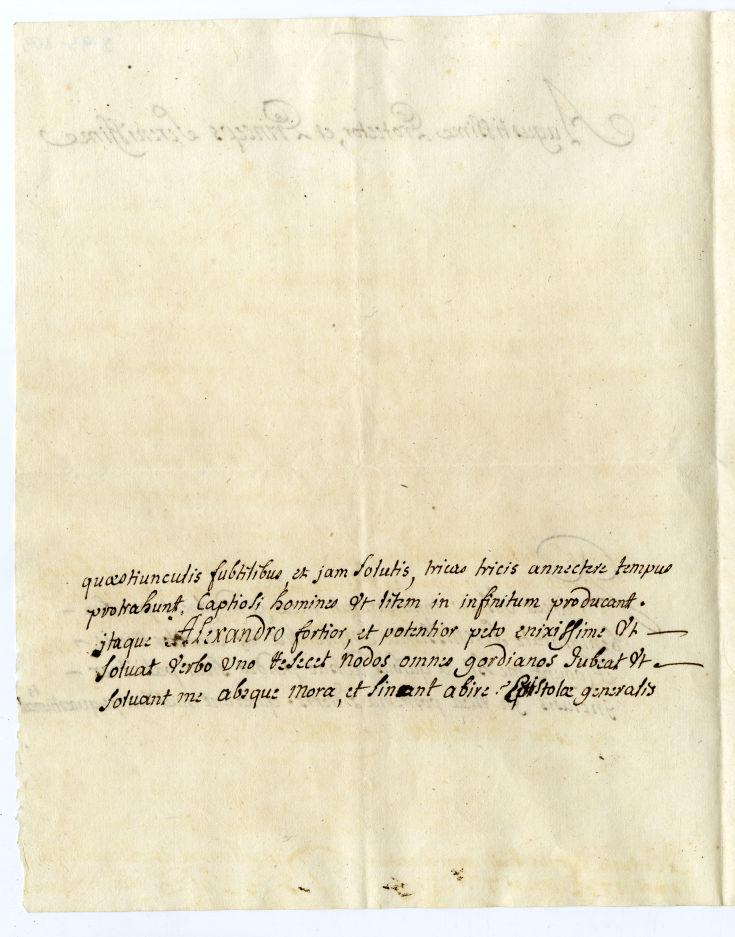 quæstiunculis subtilibus, et jam solutis, tricas tricis annectere tempus
protrahunt, Captiosi homines Vt litem in infinitum producant.
itaque Alexandro fortior, et potentior peto enixissime Vt
Soluat Verbo Vno resecet Nodos omnes gordianos Iubeat Vt
soluant me absque Mora, et Sinant abire Epistolæ generalis